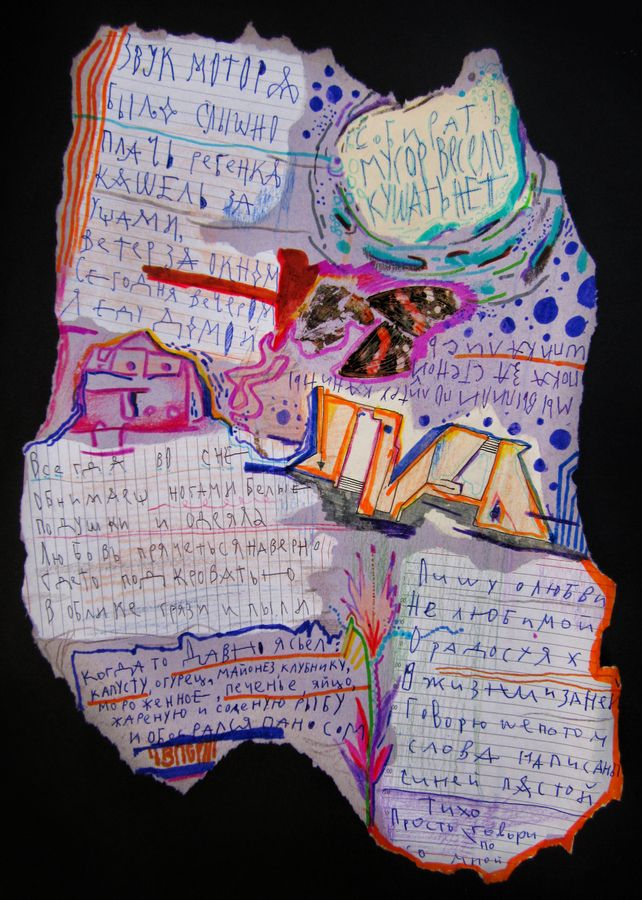 ЗВУК МОТОРА
БЫЛО СЛЫШНО
ПЛАЧЬ РЕБЕНКА
КАШЕЛЬ ЗА
УШАМИ,
ВЕТЕР ЗА ОКНОМ
СЕГОДНЯ ВЕЧЕРОМ
ЕДУ ДОМОЙ
СОБИРАТЬ
МУСОР ВЕСЕЛО
КУШАТЬ НЕТ
МЫ ВЫПИЛИ ПО ЛИТРУ
ПОКА ЗА СТЕНОЙ
Всегда во сне
обнимаеш ногами белые
подушки и одеяла
Любовь прячеться наверно
где то под кроватью
в облике грязи и пыли
Когда то давно я съел:
капусту, огурец, майонез клубнику,
мороженное, печенье, яйцо,
жареную и соленую рыбу
и обосрался паносом
Пишу о любви
Не любимой
О радостях
В жизни и за ней
Говорю шепотом
слова написаны
синей пастой
Тихо
Просто говори
по
со мной